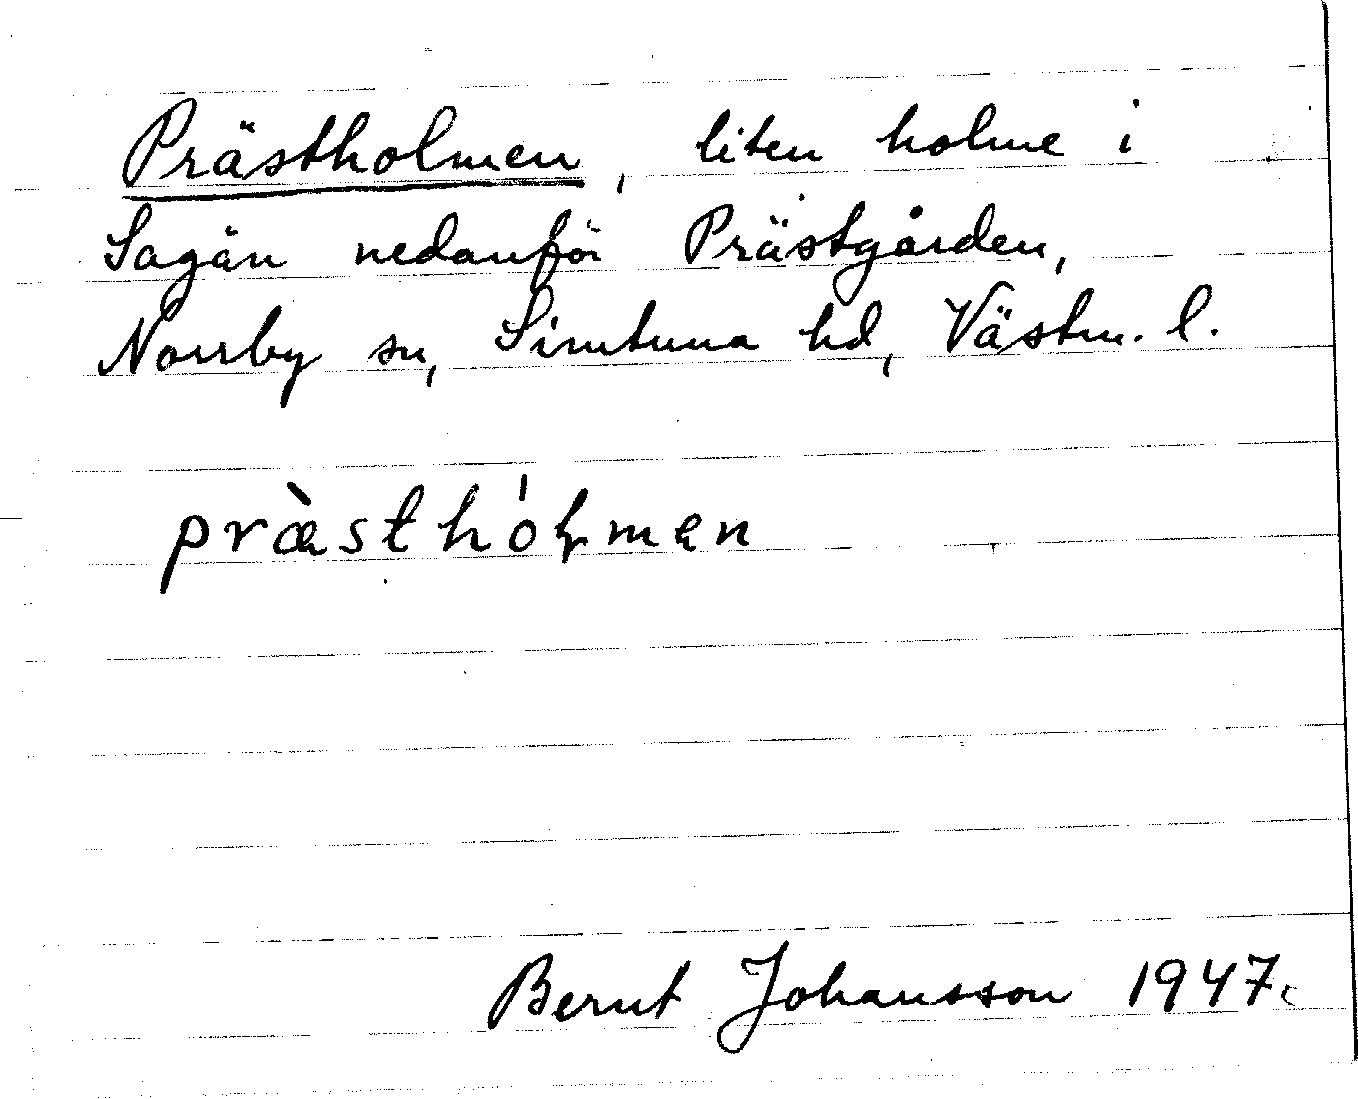 Prästholmen, liten holme i
Sagån nedanför Prästgården,
Norrby sn, Simtuna hd, Västm. l.
præ̀sthómen
Bernt Johansson 1947.